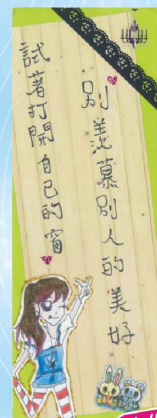 別羨慕別人的美好
試著打開自己的窗